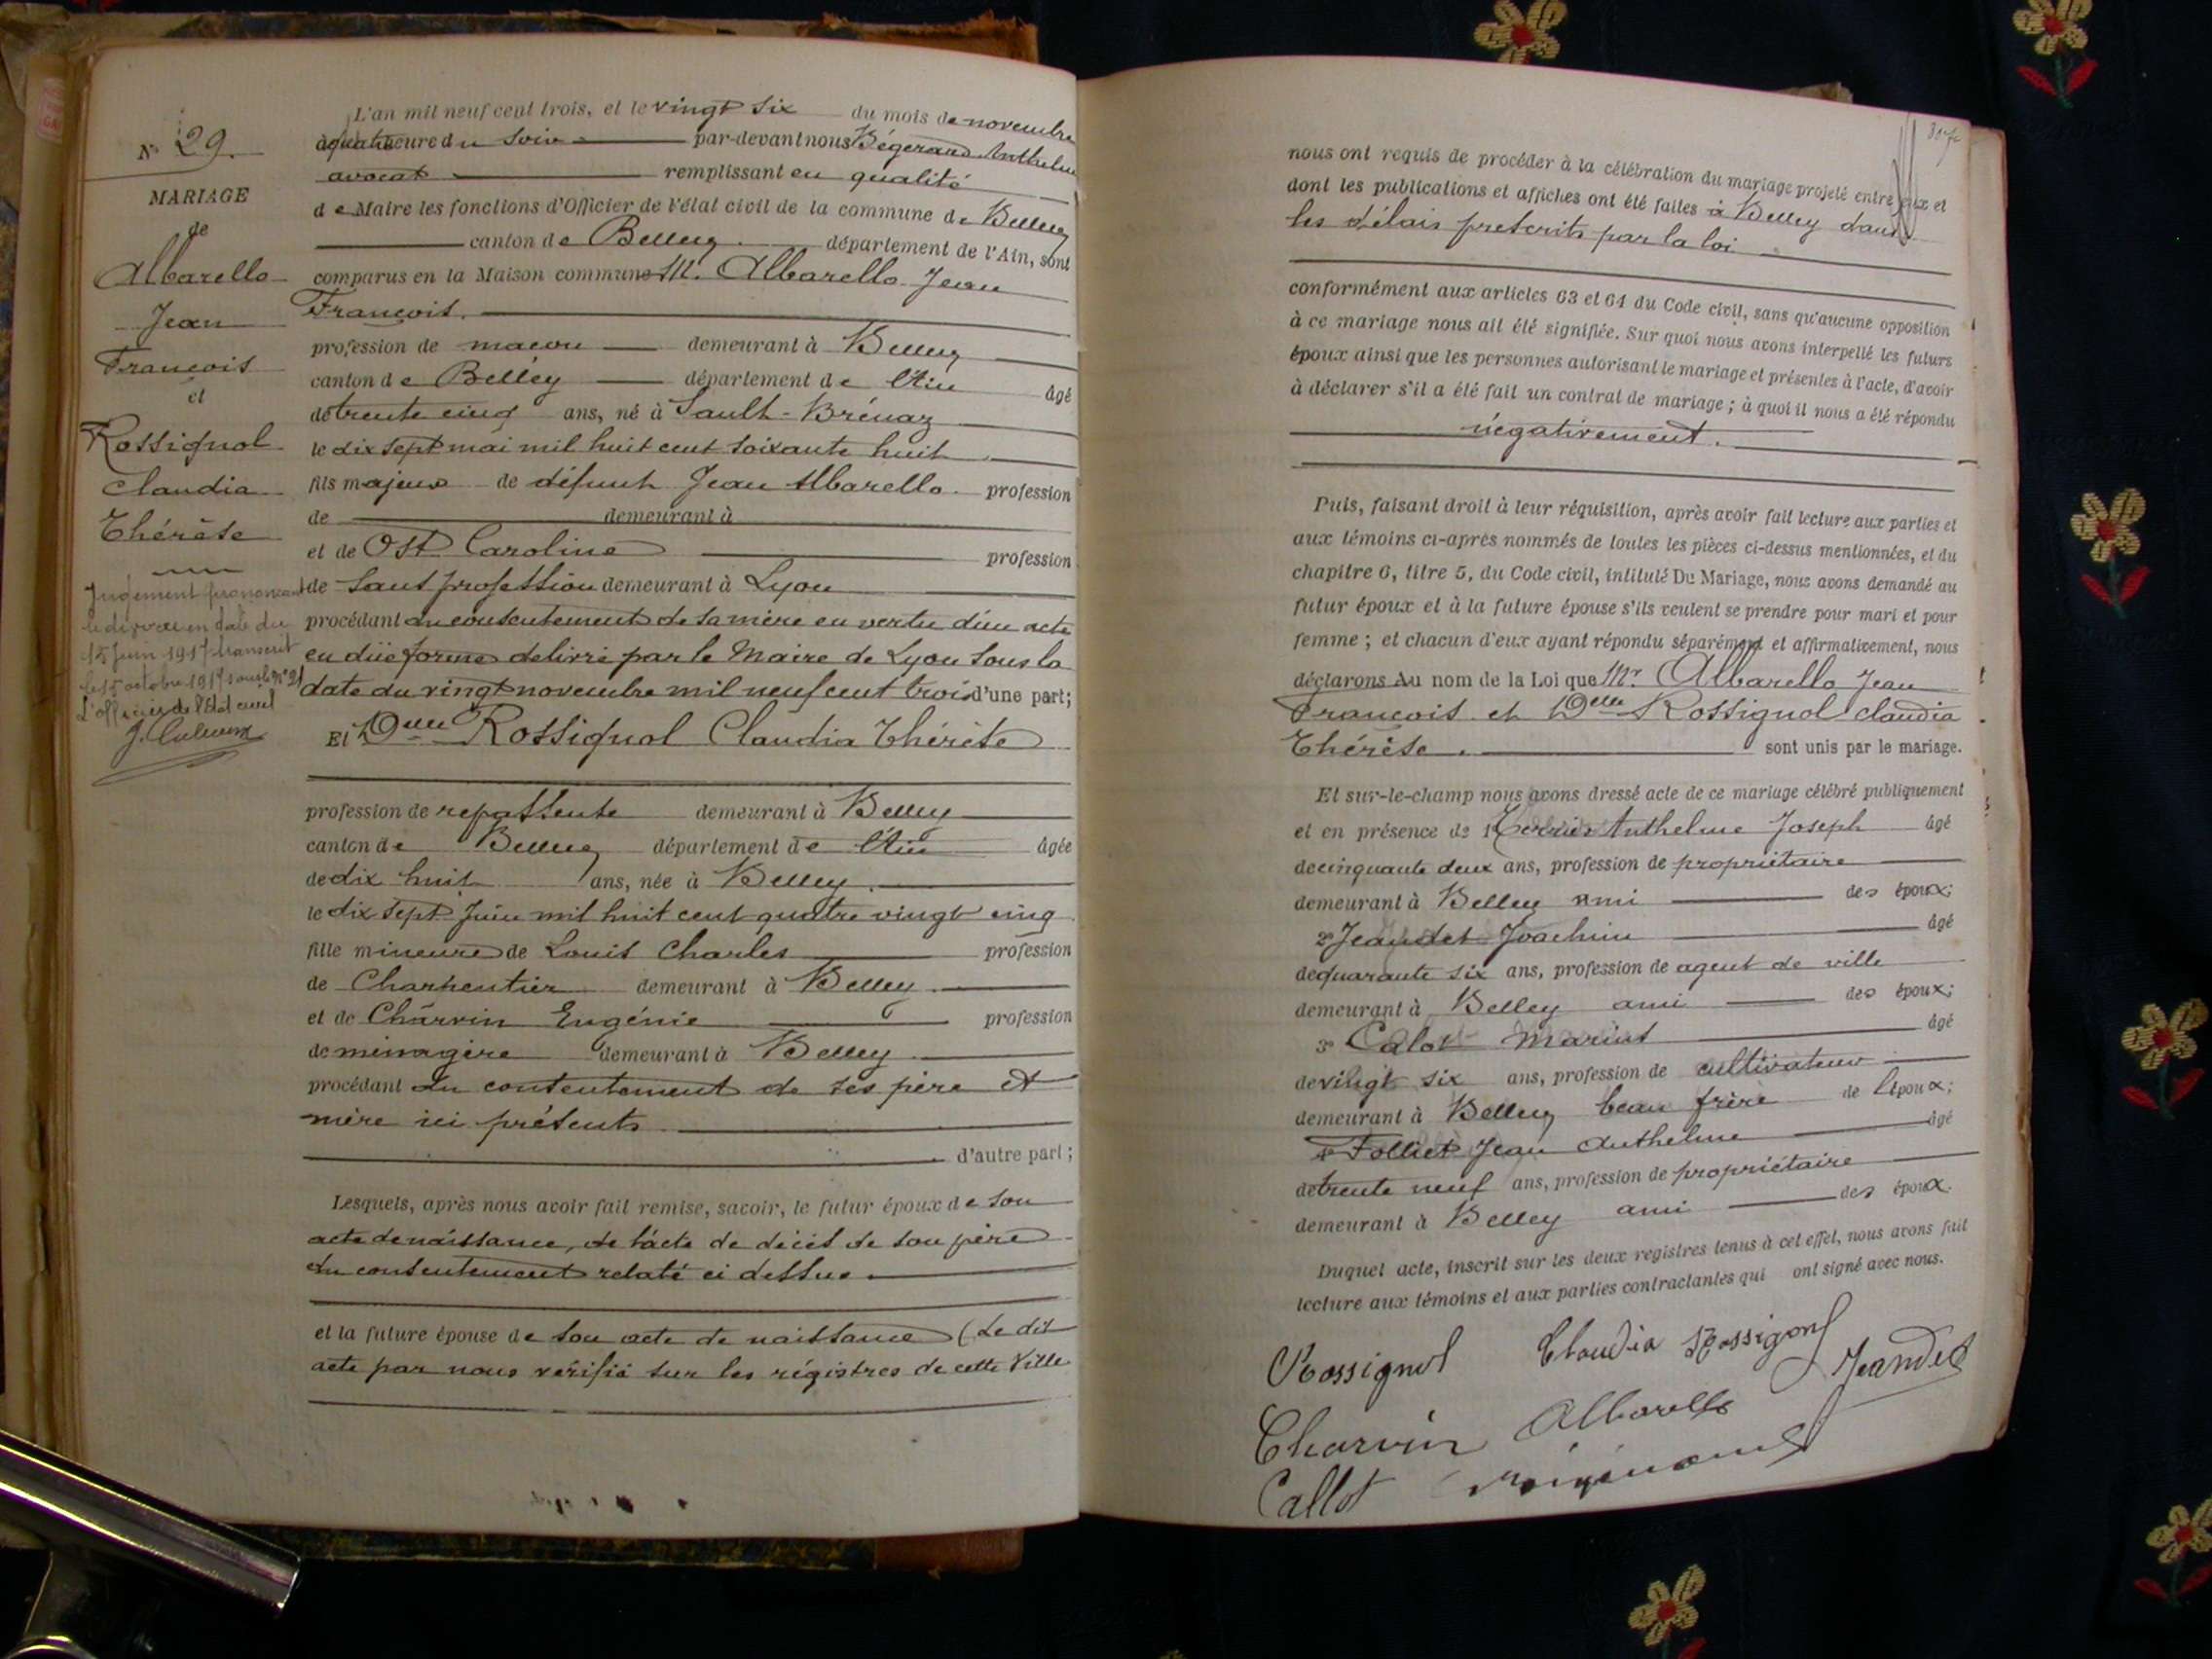 N° 29.
MARIAGE
de
Albarello
Jean
François
et
Rossignol
Claudia
Thérèse
Jugement prononçant
le divorce en date du
15 Juin 1917 transcrit
le 15 octobre 1917 sous le N° 21
L'officier de l'état civil
L'an mil neuf cent trois, et le vingt six du mois de novembre
à quatre heure du soir par-devant nous Bégerard Anthelme
avocat remplissant en qualité
de Maire les fonctions d'Officier de l'état civil de la commune de Belley
canton de Belley département de l'Ain, sont
comparus en la Maison commune M. Albarello Jean
François.
profession de maçon demeurant à Belley
canton de Belley département de l'Ain âgé
de trente cinq ans, né à Sault-Brénaz
le dix sept mai mil huit cent soixante huit
fils majeur de défunt Jean Albarello profession
de demeurant à
et de Ost Caroline profession
de sans profession demeurant à Lyon
procédant du consentement de sa mère en vertu d'un acte
en düe forme delivré par le Maire de Lyon sous la
date du vingt novembre mil neuf cent trois d'une part;
Et Delle Rossignol Claudia Thérèse
profession de repasseuse demeurant à Belley
canton de Belley département de l'Ain âgée
de dix huit ans, née à Belley.
le dix sept Juin mil huit cent quatre vingt cinq
fille mineure de Louis Charles profession
de Charpentier demeurant à Belley.
et de Charvin Eugénie profession
de ménagère demeurant à Belley
procédant du consentement de ses père et
mère ici présents
d'autre part;
Lesquels, après nous avoir fait remise, savoir, le futur époux de son
acte de naissance, de l'acte de décès de son père
du consentement relaté ci dessus.
et la future épouse de son acte de naissance (Le dit
acte par nous vérifié sur les régistres de cette Ville
nous ont requis de procéder à la célébration du mariage projeté entre eux et
dont les publications et affiches ont été faites à Belley dans
les délais prescrits par la loi
conformément aux articles 63 et 64 du Code civil, sans qu'aucune opposition
à ce mariage nous ait été signifiée. Sur quoi nous avons interpellé les futurs
époux ainsi que les personnes autorisant le mariage et présentes à l'acte, d'avoir
à déclarer s'il a été fait un contrat de mariage; à quoi il nous a été répondu
négativement.
Puis, faisant droit à leur réquisition, après avoir fait lecture aux parties et
aux témoins ci-après nommés de toutes les pièces ci-dessus mentionnées, et du
chapitre 6, titre 5, du Code civil, intitulé Du Mariage, nous avons demandé au
futur époux et à la future épouse s'ils veulent se prendre pour mari et pour
femme; et chacun d'eux ayant répondu séparément et affirmativement, nous
déclarons Au nom de la Loi que Mr Albarello Jean
François et Delle Rossignol Claudia
Thérèse. sont unis par le mariage.
Et sur-le-champ nous avons dressé acte de ce mariage célébré publiquement
et en présence de 1° Anthelme Joseph âgé
de cinquante deux ans, profession de propriétaire
demeurant à Belley ami des époux;
2° Jeandet Joachim âgé
de quarante six ans, profession de agent de ville
demeurant à Belley ami des époux;
3° Calot Marius âgé
de vingt six ans, profession de cultivateur
demeurant à Belley beau frère de l'époux;
4° Folliet Jean Anthelme âgé
de trente neuf ans, profession de propriétaire
demeurant à Belley ami des époux.
Duquel acte, inscrit sur les deux registres tenus à cet effet, nous avons fait
lecture aux témoins et aux parties contractantes qui ont signé avec nous.
Rossignol Claudia Rossignol Jeandet
Charvin Albarello
Callot